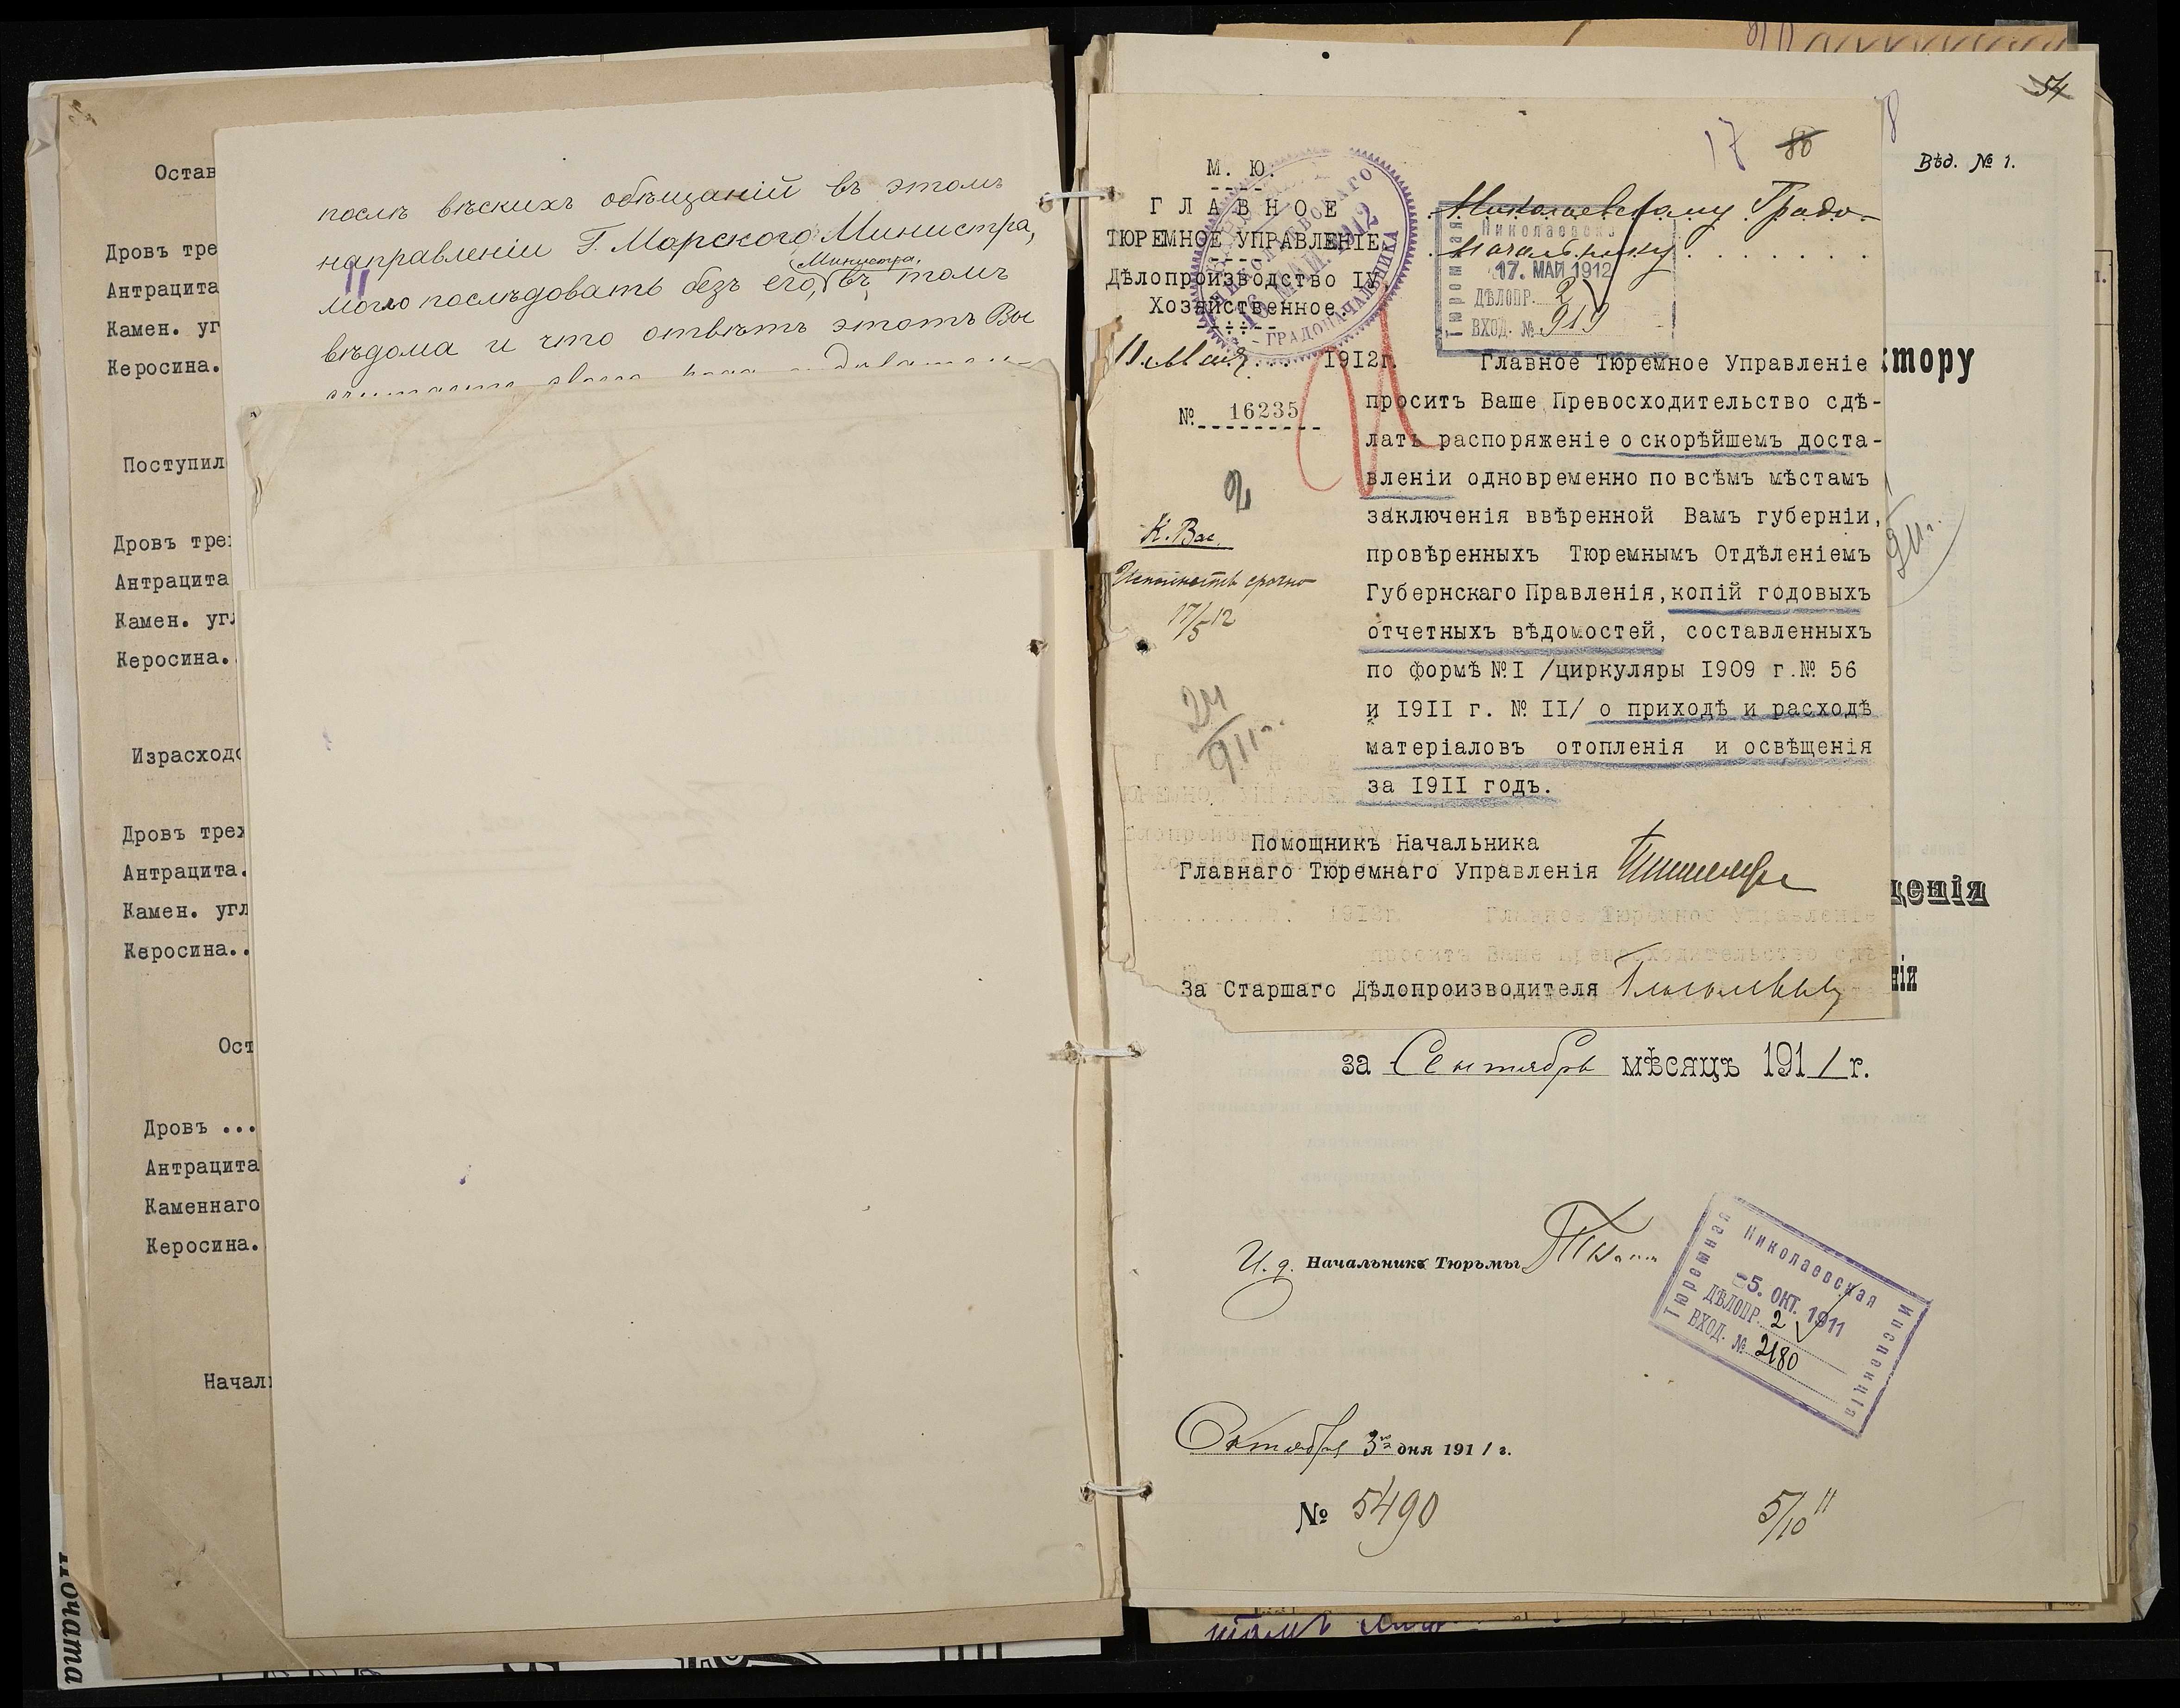 Остав
Дровъ тре
Антрацита
Камен. уг
Керосина.
Поступил
Дровъ тре
Антрацита
Камен. угл
Керосина.
Израсходо
Дровъ трех
Антрацита.
Камен. угл
Керосина..
Ост
Дровъ ...
Антрацита
Каменнаго
Керосина.
Начал
послѣ вѣскихъ обѣщаній въ этомъ
направленіи Г. Морского Министра,
Министра,
могло послѣдовать безъ его, въ томъ
вѣдома и что отвѣтъ этотъ Вы
54
Вѣд. № 1.
17 80
8
М. Ю.
ГЛАВНОЕ
ТЮРЕМНОЕ УПРАВЛЕНІЕ.
Дѣлопроизводство IV,
Хозяйственное.
16 МАЙ 1912
ГРАДОНАЧАЛЬНИКА
Николаевскому Градо-
начальнику
Тюремная
Николаевска
17. МАЙ 1912
ДѢЛОПР. 2
ВХОД. № 919
11 Мая 1912г.
№ 16235
2
К. Вас.
Исполнить срочно
17/5 12
24/911 г.
Главное Тюремное Управленіе
проситъ Ваше Превосходительство сдѣ-
лать распоряженіе о скорѣйшемъ доста-
вленіи одновременно по всѣмъ мѣстамъ
заключенія ввѣренной Вамъ губерніи,
провѣренныхъ Тюремнымъ Отдѣленіемъ
Губернскаго Правленія, копій годовыхъ
отчетныхъ вѣдомостей, составленныхъ
по формѣ №I /циркуляры 1909 г.№ 56
и 1911 г. № II/ о приходѣ и расходѣ
матеріаловъ отопленія и освѣщенія
за 1911 годъ.
Помощникъ Начальника
Главнаго Тюремнаго Управленія
За Старшаго Дѣлопроизводителя
ктору
911 г.
щенія
ніи
за Сентябрь мѣсяцъ 1911 г.
И. д. Начальникъ Тюрьмы
Тюремная
Николаевская
Инспекція
-5. ОКТ. 1911
ДѢЛОПР. 2
ВХОД. № 2180
Октября 3го дня 1911 г.
№ 5490
5/10 11